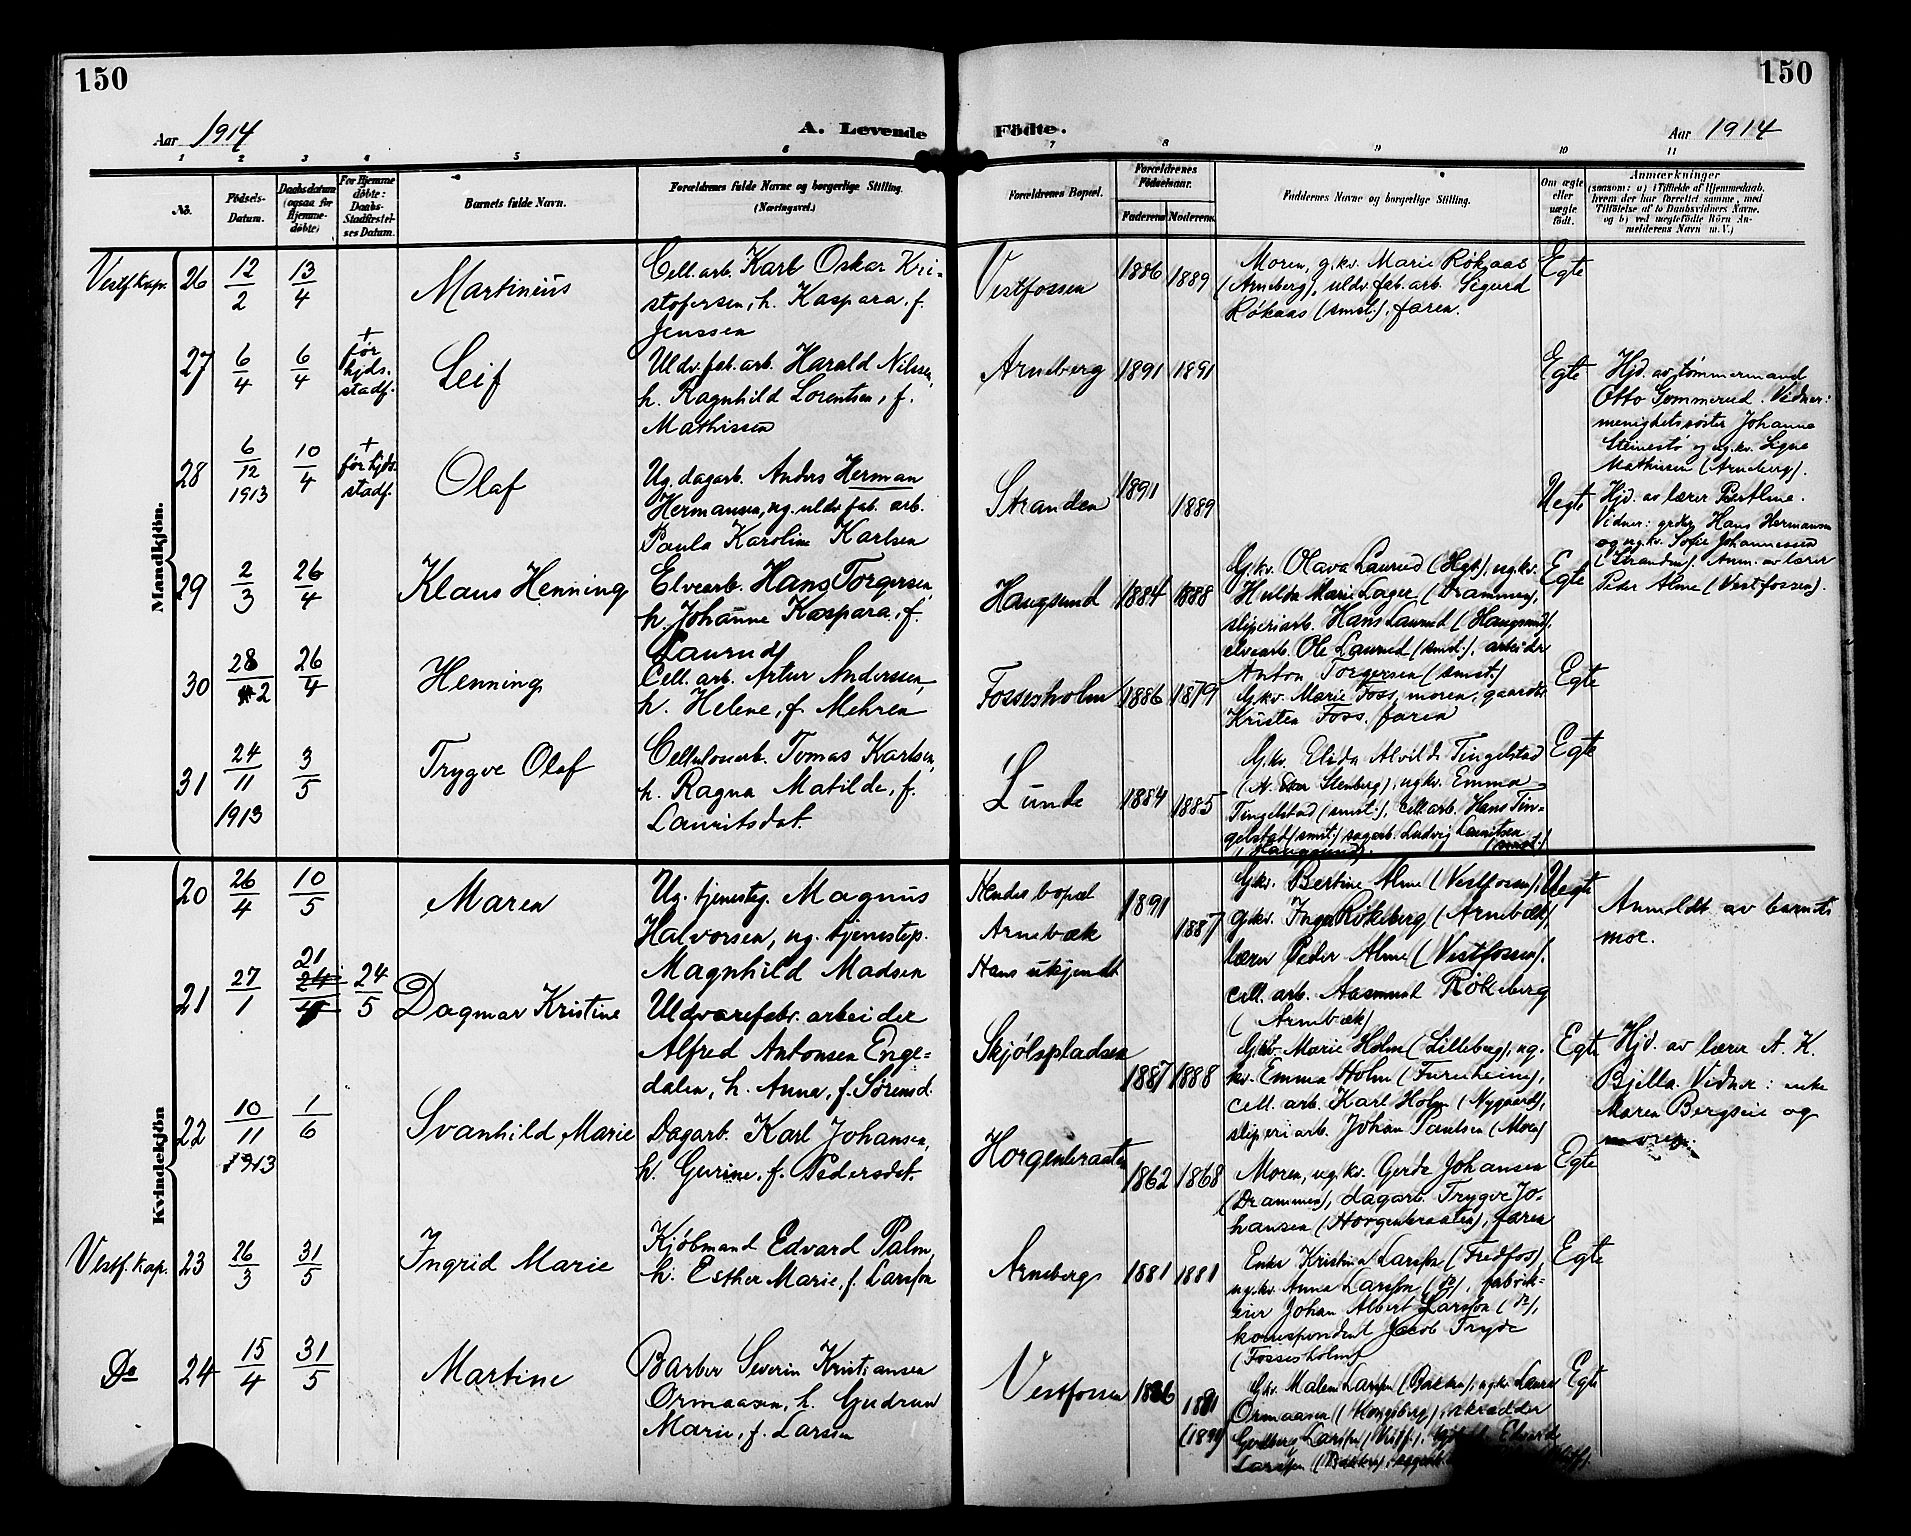 150
150
Aar 1914
A. Levende
Födte.
Aar 1914
1 2 3 4 5 6 7 8 9 10 11
No.
Födsels-
Datum.
Daabsdatum
(ogsaa for
Hjemme-
döbte)
For Hjemme
döbte:
Daabs-
Stadfæstel-
ses Datum.
Barnets fulde Navn.
Forældrenes fulde Navne og borgerlige Stilling.
(Næringsvei.)
Forældrenes Bopæl.
Forældrenes
Födselsaar.
Faderens Moderens
Faddernes Navne og borgerlige Stilling.
Om ægte
eller
uægte
födt.
Anmærkninger
(saasom: a) i Tilfælde af Hjemmedaab,
hvem der har forrettet samme, med
Tilföielse af to Daabsvidners Navne,
og b) ved uegtefödte Börn An-
melderens Navn m. V.)
Mandkjön.
Vestf kap. 26 12/2 13/4 Martinius
Cell. arb. Karl Oskar Kri-
stofersen, h. Kaspara, f.
Jenssen
Vestfossen 1886 1889
Moren, g.kv. Marie Røkaas
(Arneberg), uldv. fab. arb. Sigurd
Røkaas (smst.), faren.
Egte
27 6/4 6/4 + før hjds. stadf. Leif
Uldv. fab. arb. Harald Nilssen,
h. Ragnhild Lorentsen, f.
Mathissen
Arneberg 1891 1891
Egte
Hjd. av tømmermand
Otto Gommerud. Vidner:
menighetssøster Johanne
og ug.kv. Signe
Mathissen (Arneberg).
28 6/12 1913 10/4 + før hjds. stadf. Olaf
Ug. dagarb. Anders Herman
Hermansen, ug. uldv. fab. arb.
Paula Karoline Karlsen
Stranden 1891 1889
Uegte
Hjd. av lærer P. Alme.
Vidner: grdbr. Hans Hermansen
og ug.kv. Sofie Johannessen
(Stranden). Anm. av lærer
Peder Alme (Vestfossen).
29 2/3 26/4 Klaus Henning
Elvearb. Hans Torgersen,
h. Johanne Kaspara, f.
Laurud
Haugsund 1884 1888
G.kv. Olava Laurud (Hgs.), ug.kv.
Hulda Marie Lager (Drammen),
sliperiarb. Hans Laurud (Haugsund),
elvearb. Ole Laurud (smst.), arbeider
Anton Torgersen (smst.)
Egte
30 28/2 26/4 Henning
Cell. arb. Artur Anderssen,
h. Helene, f. Mehren
Fossesholm 1886 1879
G.kv. Marie Foss, moren, gaardbr.
Kristen Foss, faren
Egte
31 24/11 1913 3/5 Trygve Olaf
Cellulosearb. Tomas Karlsen,
h. Ragna Matilde, f.
Lauritsdat.
Lunde 1884 1885
G.kv. Elida Alvilde Tingelstad
(N. Stenberg), ug.kv. Emma
Tingelstad (smst.), cell. arb. Hans Tin-
gelstad (smst.) sagarb. Ludvig Lauritsen
(Haugsund). (smst.)
Egte
Kvindekjön
20 26/4 10/5 Maren
Ug. tjenesteg. Magnus
Halvorsen, ug. tjenestep.
Magnhild Madsen
Hendes bopæl
Arnebæk
Hans ukjendt
1891 1887
G.kv. Bertine Alme (Vestfossen),
g.kv. Inga Røkeberg (Arnebæk),
lærer Peder Alme (Vestfossen).
cell. arb. Aasmund Røkeberg
(Arnebæk)
Uegte
Anmeldt av barnets
mor.
21 27/1 21 24/5 24/5 Dagmar Kristine
Uldvarefabr. arbeider
Alfred Antonsen Enge-
dalen, h. Anna, f. Sørensd.
Skjølspladsen 1887 1888
G.kv. Marie Holm (Lilleberg), ug.
kv. Emma Holm (Fureheim),
cell. arb. Karl Holm (Nygaard),
sliperiarb. Johan Paulsen (Moen)
Egte
Hjd. av lærer A. K.
Bjella. Vidner: enke
Maren Bergseie og
moren.
22 10/11 1913 1/6 Svanhild Marie
Dagarb. Karl Johansen,
h. Gurine, f. Pedersdat.
Horgenbraaten 1862 1868
Moren, ug.kv. Gerda Johansen
(Drammen), dagarb. Trygve Jo-
hansen (Horgenbraaten), faren
Egte
Vestf. kap. 23 26/3 31/5 Ingrid Marie
Kjøbmand Edvard Palm,
h. Esther Marie, f. Larsson
Arneberg 1881 1881
Enke Kristina Larsson (Fredfos),
ug.kv. Anna Larsson (Do), fabrik-
eier Johan Albert Larsson (Do),
korrespondent Jacob Tryde
(Fossesholm)
Egte
Do 24 15/4 31/5 Martine
Barber Severin Kristiansen
Ormaasen, h. Gudrun
Marie, f. Larssen
Vestfossen 1886 1891
(1891)
G.kv. Malene Larssen (Bakken), ug.kv. Laura
Ormaasen (Kongsberg), skrædder
Larssen (Vestf.),
Larssen (Bakken),
Egte